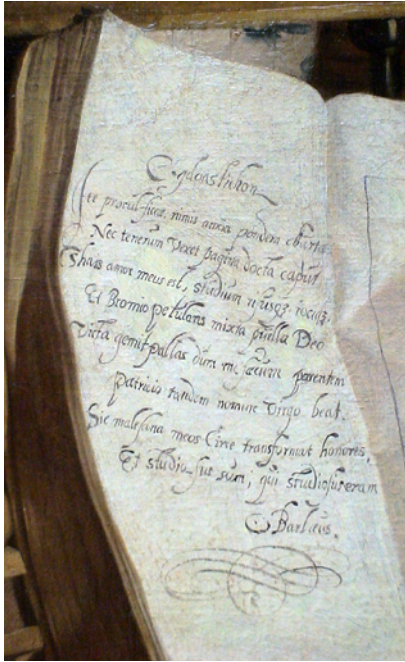 Ogdoastichon
Ite procul, nimis pondera charta
Nec tenerum vexet pagina docta caput
Thais amor meus est, studium risusqz iocusqz.
Et Bromio petulans mixta puella Deo
Victa gemit pallas dum me facum parentem
Patricio tandem nomine virgo beat.
Sic malesana meos Circe transformat honores,
Et studio sus sum, qui studiosus eram
C Barlæus.